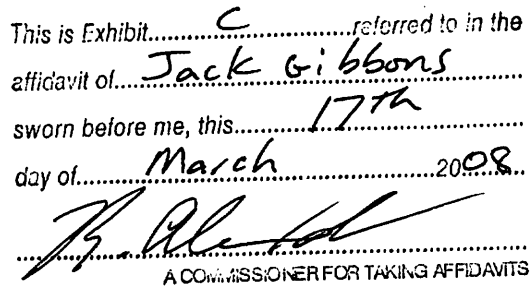 This is Exhibit..........C..........referred to in the
affidavit of....Jack Gibbons..........
sworn before me, this..........17th..........
day of.......March..........2008....
A COMMISSIONER FOR TAKING AFFIDAVITS